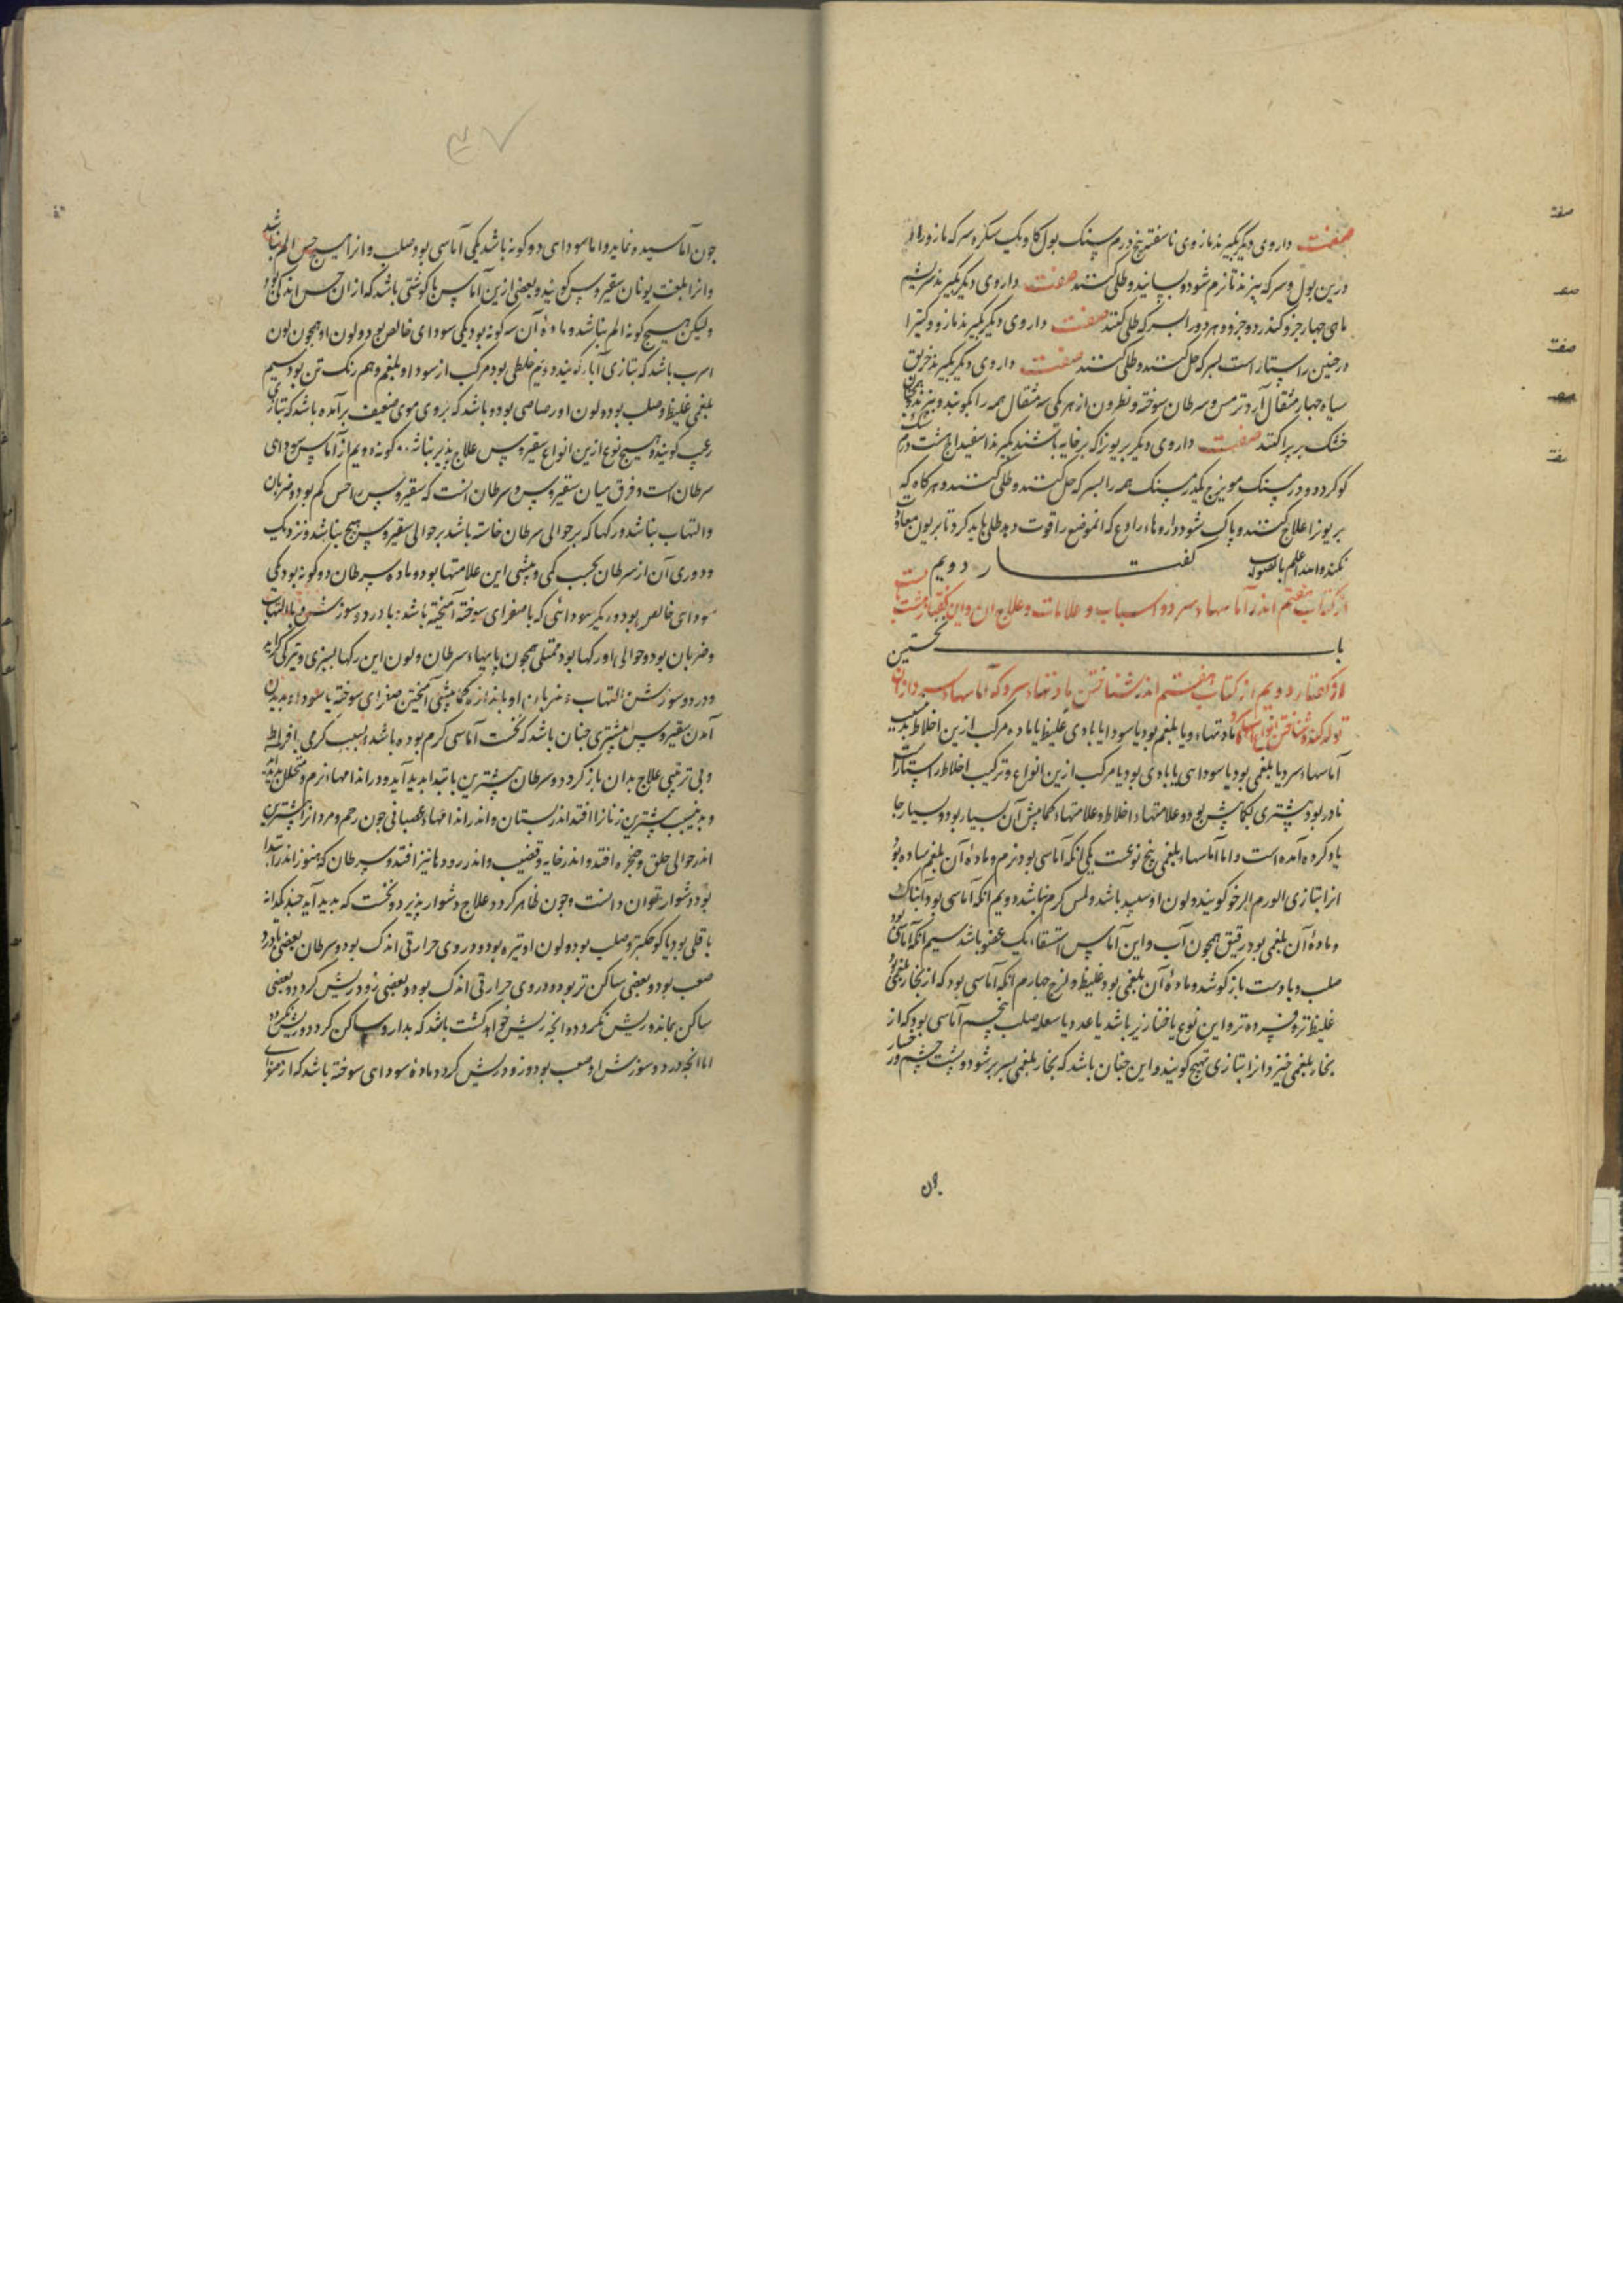 صفت داروی دیکر بکیرند مازوی ناسفته پنج درم سنک بول کاو یک سکره سرکه مازو را
درین بول و سرکه بپزند تا نرم شود و بسایند و طلی کنند صفت داروی دیکر بکیرند سریشم
ماهی جهار جزو کندر دو جزو هر دو را بسرکه طلی کنند صفت داروی دیکر بکیرند مازو و کتیرا
درجنین راستاراست بسرکه حل کنند و طلی کنند صفت داروی دیکر بکیرند خربق
سیاه جهار مثقال آرد ترمس و سرطان سوخته و نطرون از هر یکی سه مثقال همه را بکوبند و ببزند و همجنان
خشک بر پراکنند صفت داروی دیکر بریون را که بر خایه باشد بکیرند اسفیداج هشت درم سنک
کوکرد دو درم سنک مویزج یکدرم سنک همه را بسرکه حل کنند و طلی کنند و هر کاه که
بریون را علاج کنند و پاک شود داروهاء رادع که انموضع را قوت دهد طلی باید کرد تا بریون معاودت
نکند والله اعلم بالصواب کفتار دویم
از کتاب هفتم اندر آماسهاء سرد و اسباب و علامات و علاج ان و این کفتار هشت بابست
باب نخستین
از کفتار دویم از کتاب هفتم اندر شناختن مادتهاء سرد که آماسهاء سرد از ان
تولد کند و شناختن انواع آماسها مادتهاء و یا بلغم بود یا سودا یا بادی غلیظ یا ماده مرکب ازین اخلاط بدین سبب
آماسهاء سرد یا بلغمی بود یا سودایی یا بادی بود یا مرکب ازین انواع و ترکیب اخلاط راستاراست
نادر بود بیشتری بکمابیش بود و علامتهاء اخلاط و علامتهاء کمابیش آن بسیار بود و بسیار جا
یاد کرده آمده است و اما آماسهاء بلغمی پنج نوعست یکی انکه آماسی بود نرم و مادهٔ آن بلغم ساده بود
انرا بتازی الورم الرخو کویند و لون او سپید باشد و لمس کرم نباشد دویم انکه آماسی بود آبناک
و مادهٔ آن بلغمی بود رقیق همجون آب و این آماس استسقاء یک عضو باشد سیم انکه آماسی بود
صلب و با دست باز کوشد و مادهٔ آن بلغمی بود غلیظ و لزج جهارم انکه آماسی بود که از بخار بلغمی بود
غلیظ تر و فسرده تر و این نوع یا خنازیر باشد یا غدد یا سلعه صلب پنجم آماسی بود که از
بخار بلغمی خیزد انرا بتازی تهبج کویند و این جنان باشد که بخار بلغمی بسر بر شود و پشت جشم و رخسار
جون
جون آماسیده نماید و اما سودای دو کونه باشد یکی آماسی بود صلب و انرا هیچ حس الم نباشد
و انرا بلغت یونان سقیروس کویند و بعضی ازین آماس ها کوشتی باشد که از ان حس اندکی بود
ولیکن هیچ کونه الم نباشد و مادهٔ آن سه کونه بود یکی سودای خالص بود و لون او همجون لون
اسرب باشد که بتازی آبار کویند دویم خلطی بود مرکب از سودا و بلغم و هم رنک تن بود سیم
بلغمی غلیظ و صلب بود و لون او رصاصی بود و باشد که بر وی موی ضعیف برآمده باشد که بتازی
زغب کویند و هیچ نوع ازین انواع سقیروس علاج پذیر نباشد کونه دویم از آماس سودای
سرطان است و فرق میان سقیروس و سرطان انست که سقیروس را حس کم بود و ضربان
و التهاب نباشد و رکها که بر حوالی سرطان خاسته باشد بر حوالی سقیروس هیچ نباشد و نزدیک
و دوری آن از سرطان بحسب کمی و بیشی این علامتها بود و ماده سرطان دو کونه بود یکی
سودای خالص بود و دیکر سودائی که با صفرای سوخته آمیخته باشد با درد و سوزش و با التهاب
و ضربان بود و حوالی او رکها بود ممتلی همجون پایهاء سرطان و لون این رکها بسبزی و تیرکی کراید
و درد و سوزش و التهاب و ضربان او باندازه کمابیشی آمیختن صفرای سوخته یا سوداء بدید
آمدن سقیروس بیشتری جنان باشد که نخست آماسی کرم بوده باشد و بسبب کرمی بافراط
و بی ترتیبی علاج بدان باز کردد و سرطان بیشترین بابتدا بدید آید و در اندامهاء نرم و متخلخل بدید
و بدین سبب بیشترین زنانرا افتد اندر پستان و اندر اندامهاء عصبانی جون رحم و مردانرا بیشترین
اندر حوالی حلق و حنجره افتد و اندر خایه و قضیب و اندر رودها نیز افتد و سرطان که هنوز اندر ابتدا
بود دشوار بتوان دانست و جون ظاهر کردد علاج دشوار پذیرد و نخست که بدید آید جند یکدانه
باقلی بود یا کوجکتر و صلب بود و لون او تیره بود و در وی حرارتی اندک بود و سرطان بعضی با درد
صعب بود و بعضی ساکن تر بود و در وی حرارتی اندک بود و بعضی زود ریش کردد و بعضی
ساکن بماند و ریش نکردد و انجه ریش خواهد کشت باشد که بدارو ساکن کردد و ریش نکردد
اما انجه درد و سوزش او صعب بود و زود ریش کردد ماده سودای سوخته باشد که از صفرای